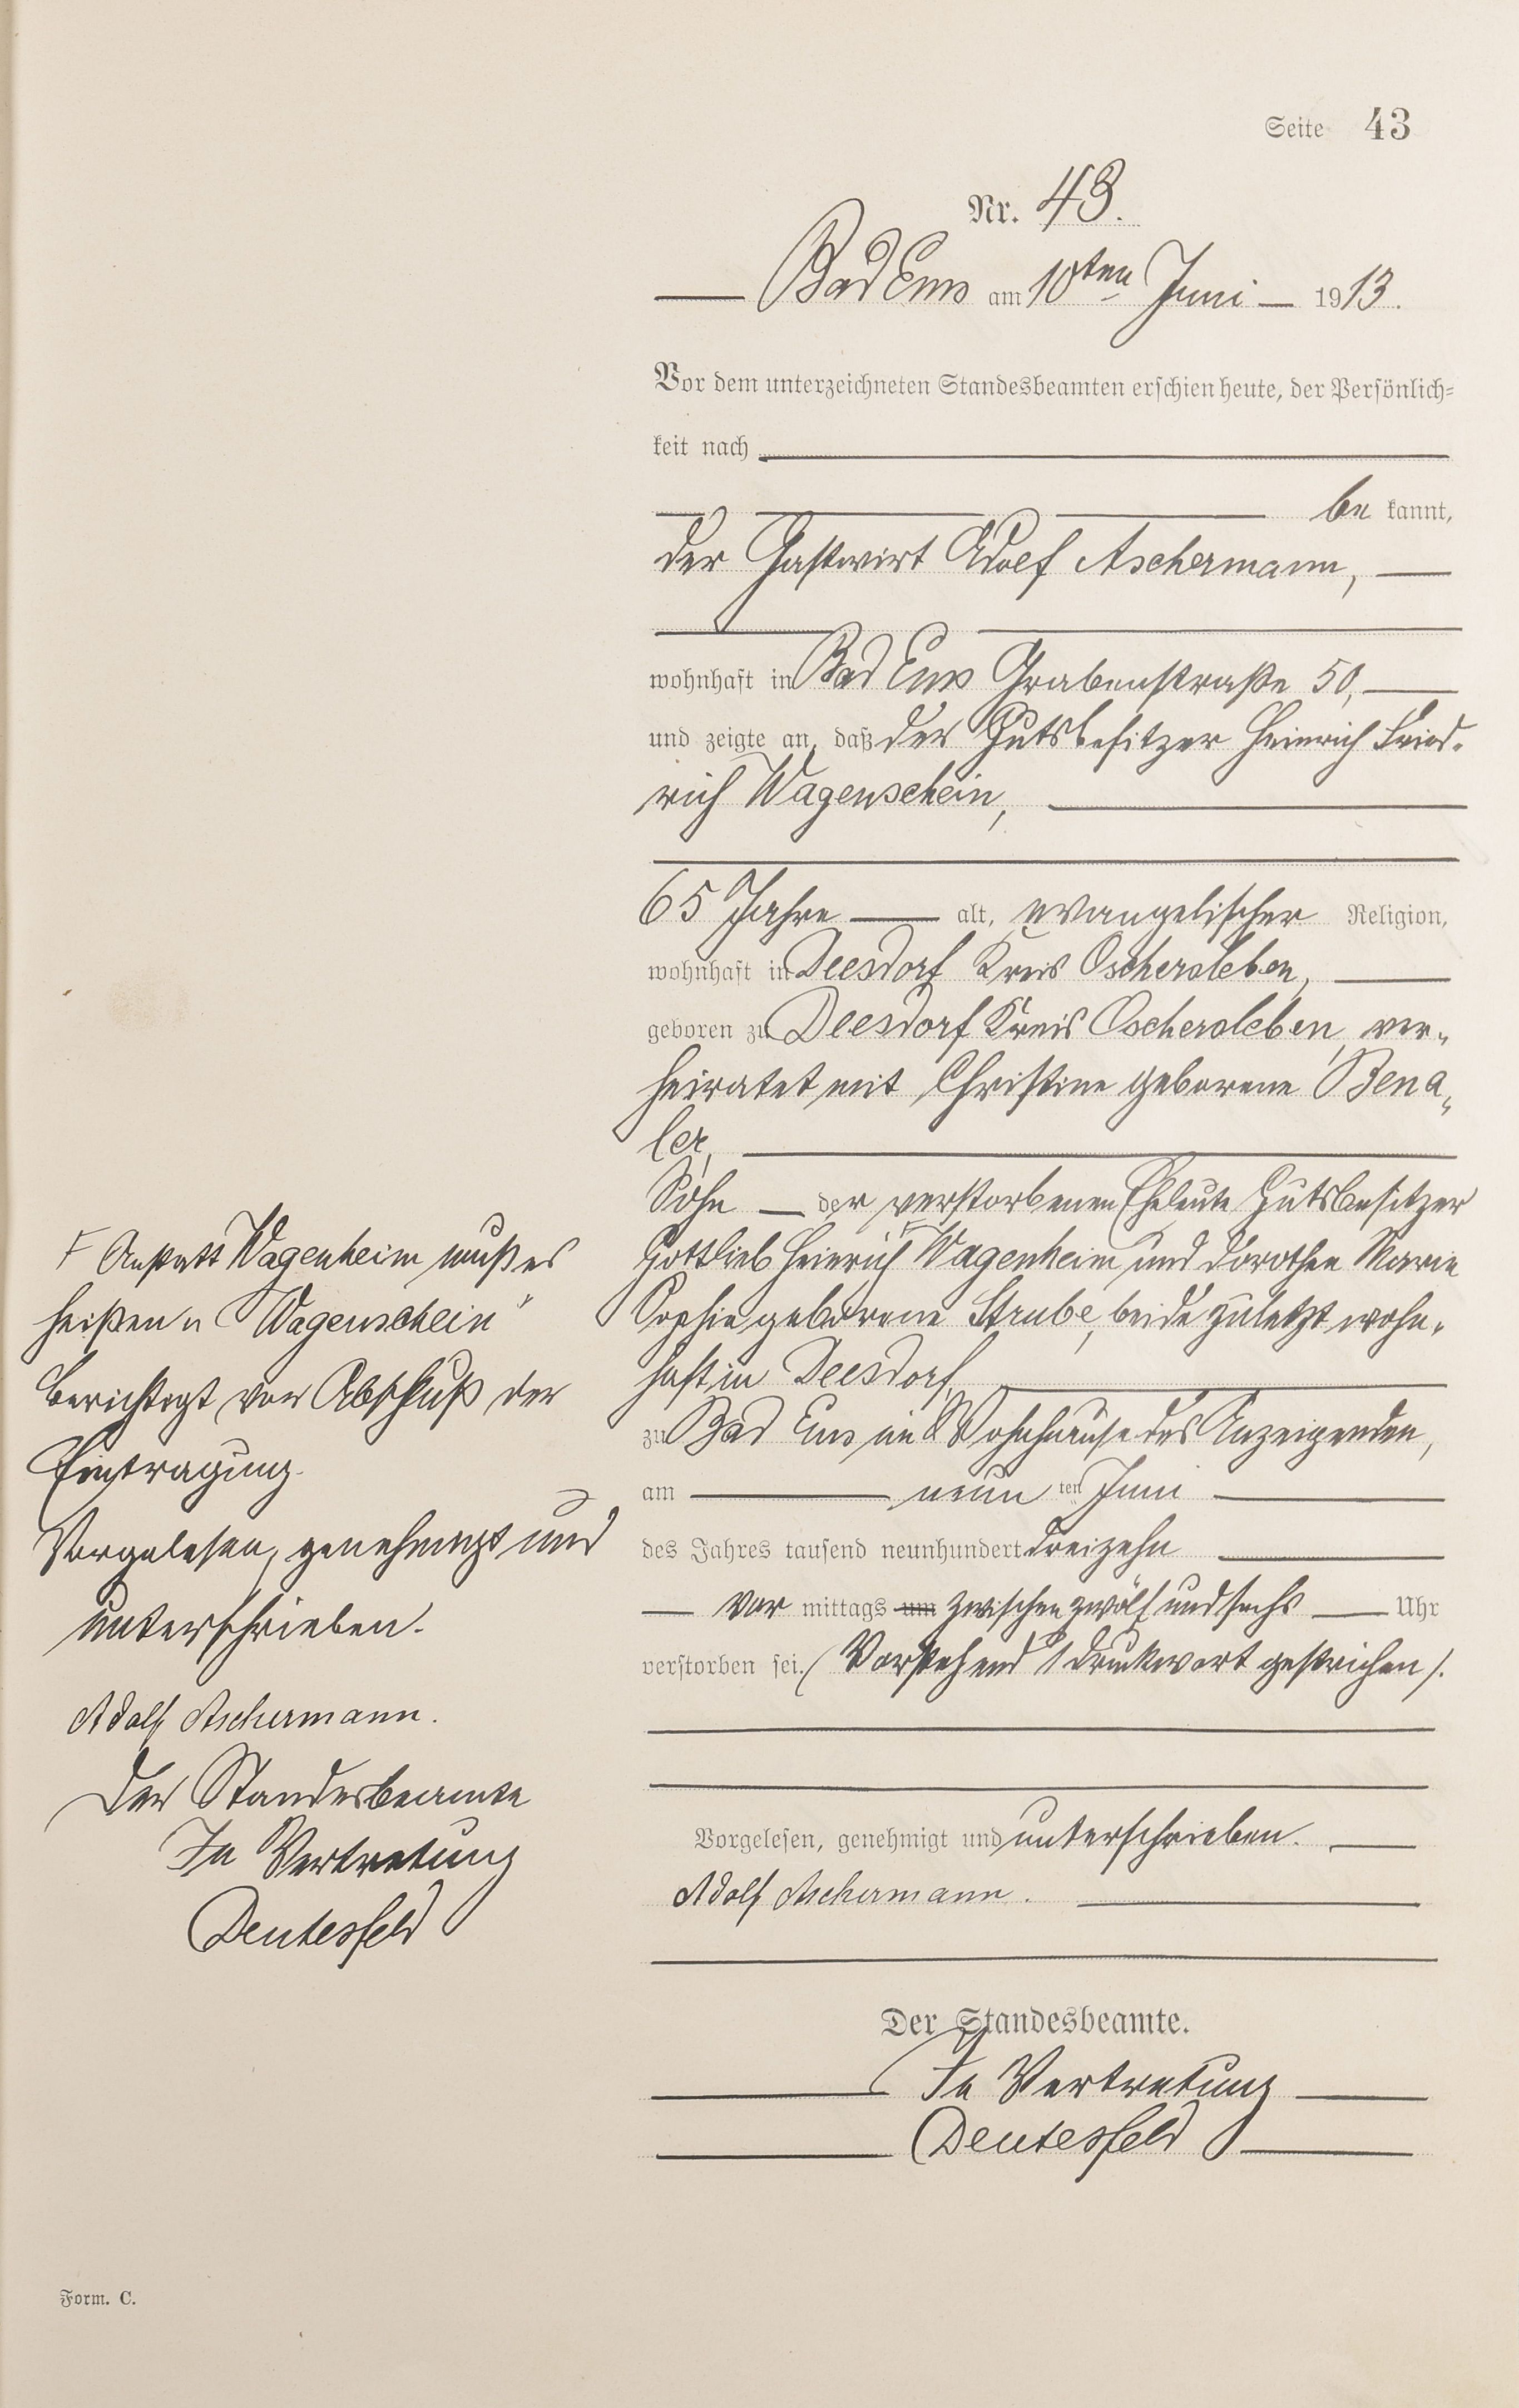 Seite 43
Nr. 43.
Bad Ems am 10ten Juni 1913.
Vor dem unterzeichneten Standesbeamten erschien heute, der Persönlich-
keit nach
be kannt,
der Gastwirt Adolf Aschermann,
wohnhaft in Bad Ems Grabenstraße 50,
und zeigte an, daß der Gutsbesitzer Heinrich Fried-
rich Wagenschein,
65 Jahre alt, evangelischer Religion,
wohnhaft in Deesdorf Kreis Oschersleben,
geboren zu Deesdorf Kreis Oschersleben, ver-
heiratet mit Christine geborene Bena-
ler,
Sohn der verstorbenen Eheleute Gutsbesitzer
Gottlieb Heinrich Ͱ Wagenheim und Dorothee Marie
Sophie geborene Strube, beide zuletzt wohn-
haft in Deesdorf,
zu Bad Ems im Wohnhause des Anzeigenden,
am neun ten Juni
des Jahres tausend neunhundert dreizehn
vor mittags um zwischen zwölf und sechs Uhr
verstorben sei. (Vorstehend 1 Druckwort gestrichen).
Vorgelesen, genehmigt und unterschrieben.
Adolf Aschermann.
Der Standesbeamte.
In Vertretung
Deutesfeld
Ͱ Anstatt Wagenheim muß es
heißen „Wagenschein"
Berichtigt vor Abschluß der
Eintragung.
Vorgelesen, genehmigt und
unterschrieben.
Adolf Aschermann.
Der Standesbeamte
In Vertretung
Deutesfeld
Form. C.